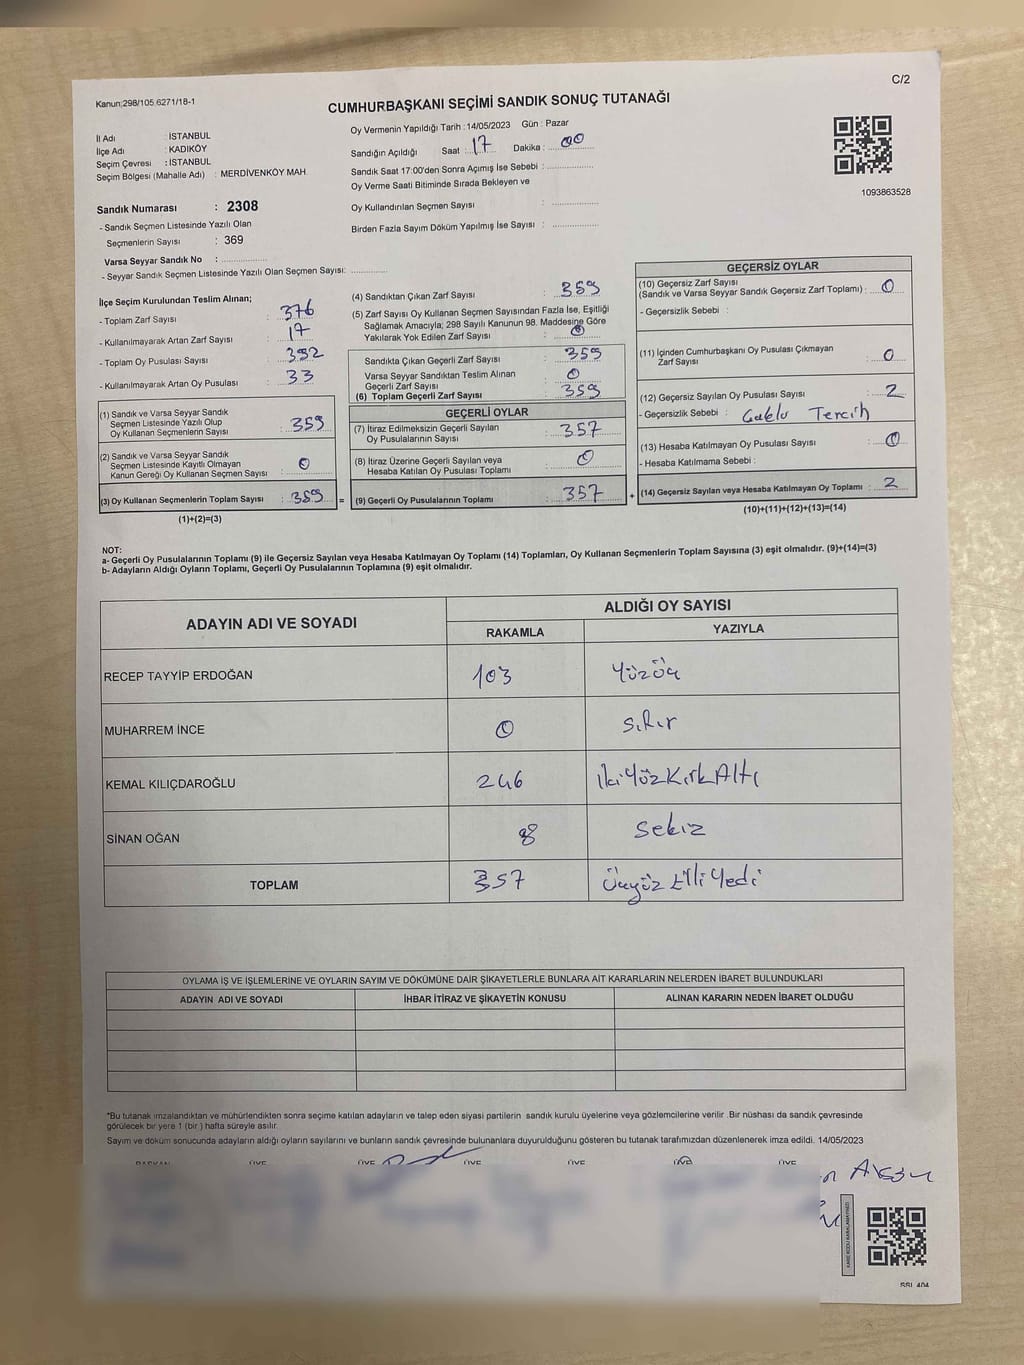 C/2
Kanun;298/105,6271/18-1
CUMHURBAŞKANI SEÇİMİ SANDIK SONUÇ TUTANAĞI
İl Adı : İSTANBUL
İlçe Adı : KADIKÖY
Seçim Çevresi : İSTANBUL
Seçim Bölgesi (Mahalle Adı) : MERDİVENKÖY MAH.
Sandık Numarası : 2308
- Sandık Seçmen Listesinde Yazılı Olan
Seçmenlerin Sayısı : 369
Varsa Seyyar Sandık No :
- Seyyar Sandık Seçmen Listesinde Yazılı Olan Seçmen Sayısı:
Oy Vermenin Yapıldığı Tarih : 14/05/2023 Gün : Pazar
Sandığın Açıldığı Saat : 17 Dakika : 00
Sandık Saat 17:00'den Sonra Açımış İse Sebebi :
Oy Verme Saati Bitiminde Sırada Bekleyen ve
Oy Kullandırılan Seçmen Sayısı :
Birden Fazla Sayım Döküm Yapılmış İse Sayısı :
1093863528
İlçe Seçim Kurulundan Teslim Alınan;
- Toplam Zarf Sayısı : 376
- Kullanılmayarak Artan Zarf Sayısı : 17
- Toplam Oy Pusulası Sayısı : 392
- Kullanılmayarak Artan Oy Pusulası : 33
(1) Sandık ve Varsa Seyyar Sandık
Seçmen Listesinde Yazılı Olup
Oy Kullanan Seçmenlerin Sayısı : 359
(2) Sandık ve Varsa Seyyar Sandık
Seçmen Listesinde Kayıtlı Olmayan
Kanun Gereği Oy Kullanan Seçmen Sayısı : 0
(3) Oy Kullanan Seçmenlerin Toplam Sayısı : 359 =
(1)+(2)=(3)
(4) Sandıktan Çıkan Zarf Sayısı : 359
(5) Zarf Sayısı Oy Kullanan Seçmen Sayısından Fazla İse, Eşitliği
Sağlamak Amacıyla; 298 Sayılı Kanunun 98. Maddesine Göre
Yakılarak Yok Edilen Zarf Sayısı : 0
Sandıkta Çıkan Geçerli Zarf Sayısı : 359
Varsa Seyyar Sandıktan Teslim Alınan
Geçerli Zarf Sayısı : 0
(6) Toplam Geçerli Zarf Sayısı : 359
GEÇERLİ OYLAR
(7) İtiraz Edilmeksizin Geçerli Sayılan
Oy Pusulalarının Sayısı : 357
(8) İtiraz Üzerine Geçerli Sayılan veya
Hesaba Katılan Oy Pusulası Toplamı : 0
(9) Geçerli Oy Pusulalarının Toplamı : 357 +
GEÇERSİZ OYLAR
(10) Geçersiz Zarf Sayısı
(Sandık ve Varsa Seyyar Sandık Geçersiz Zarf Toplamı) : 0
- Geçersizlik Sebebi :
(11) İçinden Cumhurbaşkanı Oy Pusulası Çıkmayan
Zarf Sayısı : 0
(12) Geçersiz Sayılan Oy Pusulası Sayısı : 2
- Geçersizlik Sebebi : Çoklu Tercih
(13) Hesaba Katılmayan Oy Pusulası Sayısı : 0
- Hesaba Katılmama Sebebi :
(14) Geçersiz Sayılan veya Hesaba Katılmayan Oy Toplamı : 2
(10)+(11)+(12)+(13)=(14)
NOT:
a- Geçerli Oy Pusulalarının Toplamı (9) ile Geçersiz Sayılan veya Hesaba Katılmayan Oy Toplamı (14) Toplamları, Oy Kullanan Seçmenlerin Toplam Sayısına (3) eşit olmalıdır. (9)+(14)=(3)
b- Adayların Aldığı Oyların Toplamı, Geçerli Oy Pusulalarının Toplamına (9) eşit olmalıdır.
ADAYIN ADI VE SOYADI ALDIĞI OY SAYISI
RAKAMLA YAZIYLA
RECEP TAYYİP ERDOĞAN 103 YüzÜç
MUHARREM İNCE 0 Sıfır
KEMAL KILIÇDAROĞLU 246 İkiYüzKırkAltı
SİNAN OĞAN 8 Sekiz
TOPLAM 357 ÜçyüzElliYedi
OYLAMA İŞ VE İŞLEMLERİNE VE OYLARIN SAYIM VE DÖKÜMÜNE DAİR ŞİKAYETLERLE BUNLARA AİT KARARLARIN NELERDEN İBARET BULUNDUKLARI
ADAYIN ADI VE SOYADI İHBAR İTİRAZ VE ŞİKAYETİN KONUSU ALINAN KARARIN NEDEN İBARET OLDUĞU
*Bu tutanak imzalandıktan ve mühürlendikten sonra seçime katılan adayların ve talep eden siyasi partilerin sandık kurulu üyelerine veya gözlemcilerine verilir .Bir nüshası da sandık çevresinde
görülecek bir yere 1 (bir ) hafta süreyle asılır.
Sayım ve döküm sonucunda adayların aldığı oyların sayılarını ve bunların sandık çevresinde bulunanlara duyurulduğunu gösteren bu tutanak tarafımızdan düzenlenerek imza edildi. 14/05/2023
BAŞKAN ÜYE ÜYE ÜYE ÜYE ÜYE ÜYE